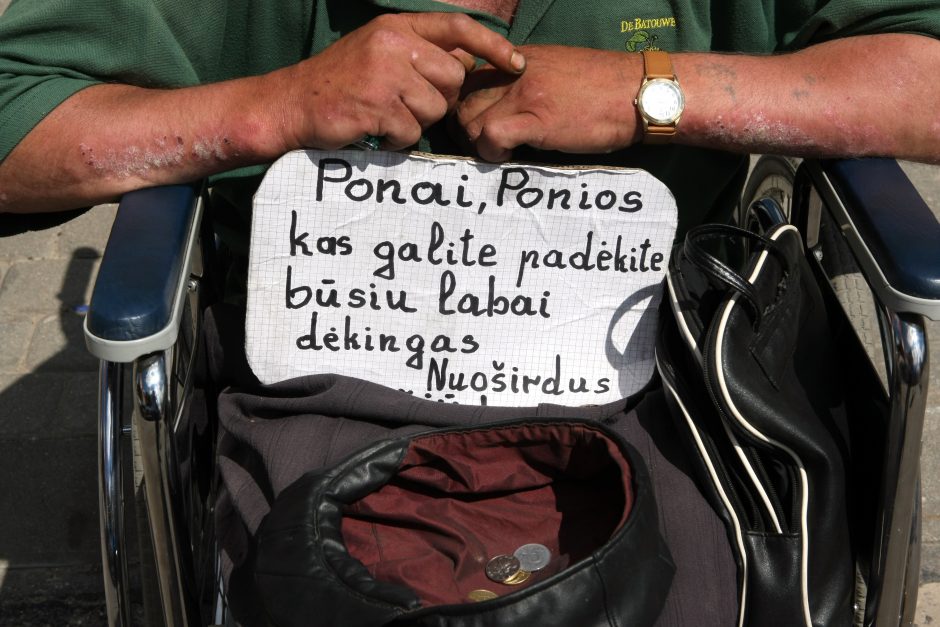 De Batouwe
Ponai, Ponios
kas galite padėkite
būsiu labai
dėkingas
Nuoširdus